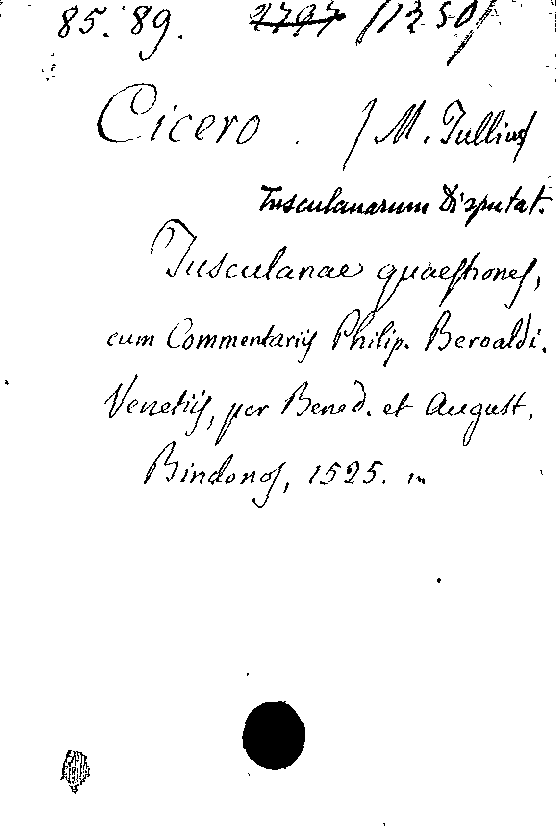 85. 89. 2797 /1250/
Cicero . / M. Tullius
Tusculanarum Disputat.
Tusculanae quaestiones,
cum Commentariis Philip. Beroaldi.
Venetiis, per Bened. et August.
Bindonos, 1525. in